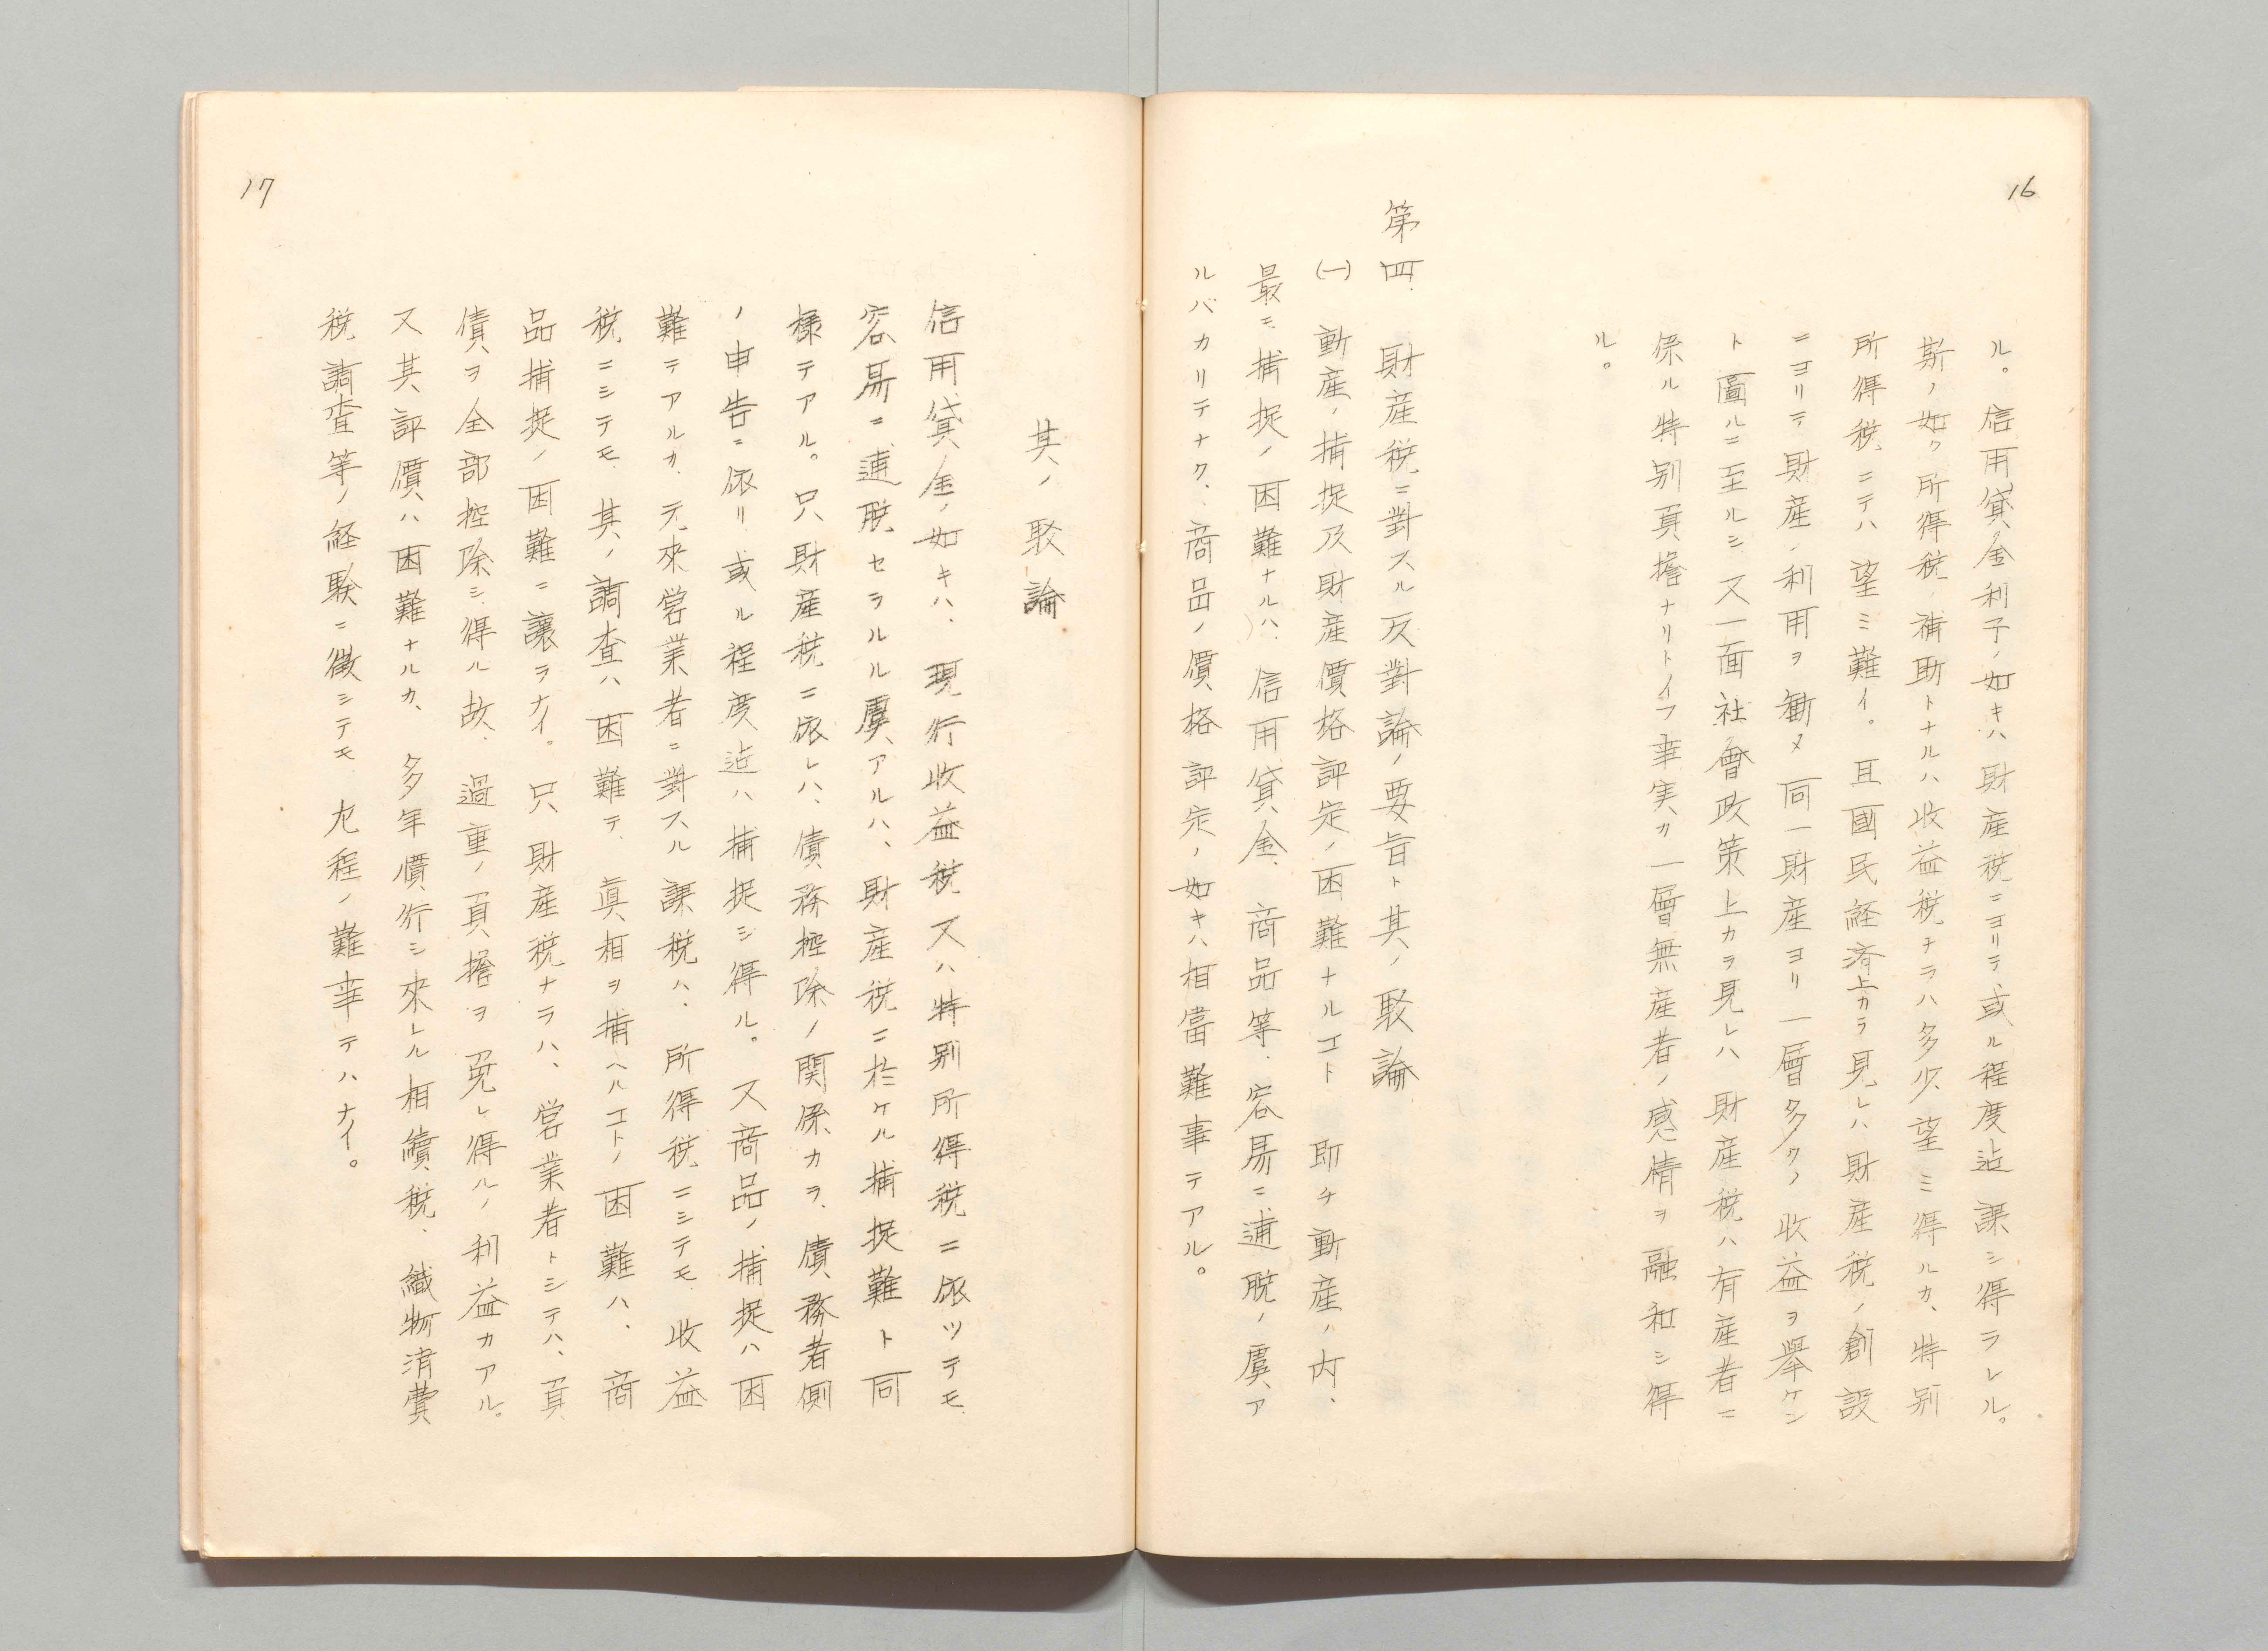 16
ル。信用貸金利子ノ如キハ財産税ニヨリテ或ル程度迠課シ得ラレル。
斯ノ如ク所得税補助トナルハ收益税ナラハ多少望ミ得ルカ、特别
所得税ニテハ望ミ難イ。且國民経済上カラ見レハ財産税ノ創設
ニヨリテ財産ノ利用ヲ勧メ同一財産ヨリ一層多クノ收益ヲ擧ケン
ト圖ルニ至ルシ又一面社會政策上カラ見レハ財産税ハ有産者ニ
係ル特别負擔ナリトイフ事実カ一層無産者ノ感情ヲ融和シ得
ル。
第四、財産税ニ對スル反對論ノ要旨ト其ノ駁論
(一)動産ノ捕捉及財産價格評定ノ困難ナルコト 即チ動産ノ内、
最モ捕捉ノ困難ナルハ、信用貸金、商品等、容易ニ逋脱ノ虞ア
ルバカリテナク、商品ノ價格評定ノ如キハ相當難事テアル。
17
其ノ駁論
信用貸金ノ如キハ、現行收益税又ハ特别所得税ニ依ツテモ、
容易ニ逋脱セラルル虞アルハ、財産税ニ於ケル捕捉難ト同
様テアル。只財産税ニ依レハ、債務控除ノ関係カラ、債務者側
ノ申告ニ依リ或ル程度迠ハ捕捉シ得ル。又商品ノ捕捉ハ困
難テアルカ、元來営業者ニ對スル課税ハ、所得税ニシテモ、收益
税ニシテモ、其ノ調査ハ困難テ、眞相ヲ捕ヘルコトノ困難ハ、商
品捕捉ノ困難ニ讓ラナイ。只財産税ナラハ、営業者トシテハ、負
債ヲ全部控除シ得ル故、過重ノ負擔ヲ免レ得ルノ利益カアル。
又其評價ハ困難ナルカ、多年慣行シ來レル相續税、織物消費
税調査等ノ経験ニ徴シテモ、左程ノ難事テハナイ。